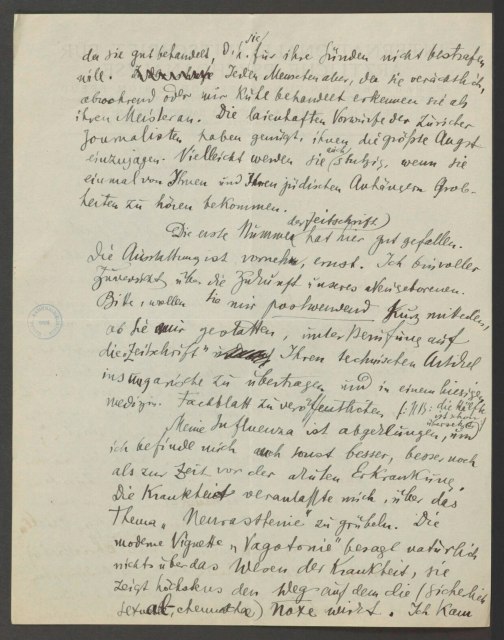 der sie gut behandelt, d. i. sie für ihre Sünden nicht bestrafen
will. Jeden Menschen aber, der sie verächtlich,
abwehrend oder nur kühl behandelt erkennen sie als
ihren Meister an. Die laienhaften Vorwürfe der Züricher
Journalisten haben genügt, ihnen die größte Angst
einzujagen. Vielleicht werden sie auch stutzig, wenn sie
einmal von Ihnen und Ihren jüdischen Anhängern Grob-
heiten zu hören bekommen.
Die erste Nummer der Zeitschrift hat mir gut gefallen.
Die Ausstattung ist vornehm, ernst. Ich bin voller
Zuversicht über die Zukunft unseres Neugeborenen.
Bitte, wollen Sie mir postwendend kurz mitteilen,
ob Sie mir gestatten, unter Berufung auf
die „Zeitschrift" Ihren technischen Artikel
ins ungarische zu übertragen und in einem hiesigen
medizin. Fachblatt zu veröffentlichen (NB: die Hälfte
ist schon
übersetzt)
Meine Influenza ist abgeklungen, und
ich befinde mich auch sonst besser, besser noch
als zur Zeit vor der akuten Erkrankung.
Die Krankheit veranlaßte mich, über das
Thema „Neurasthenie" zu grübeln. Die
moderne Vignette „Vagotonie" besagt natürlich
nichts über das Wesen der Krankheit, sie
zeigt höchstens den Weg auf dem die (sicherlich
sexual chemische) Noxe wirkt. Ich kam